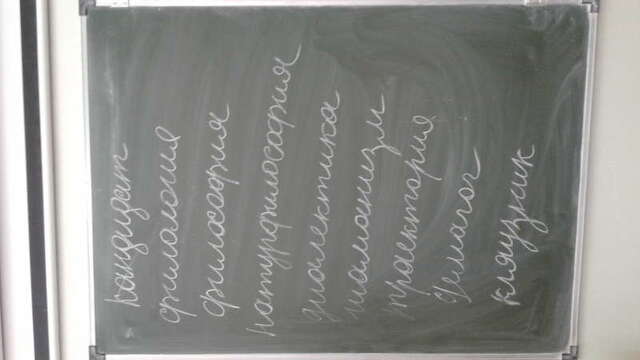 кандидат
филология
философия
натурфилософия
диалектика
шаманизм
траектория
демагог
кляузник